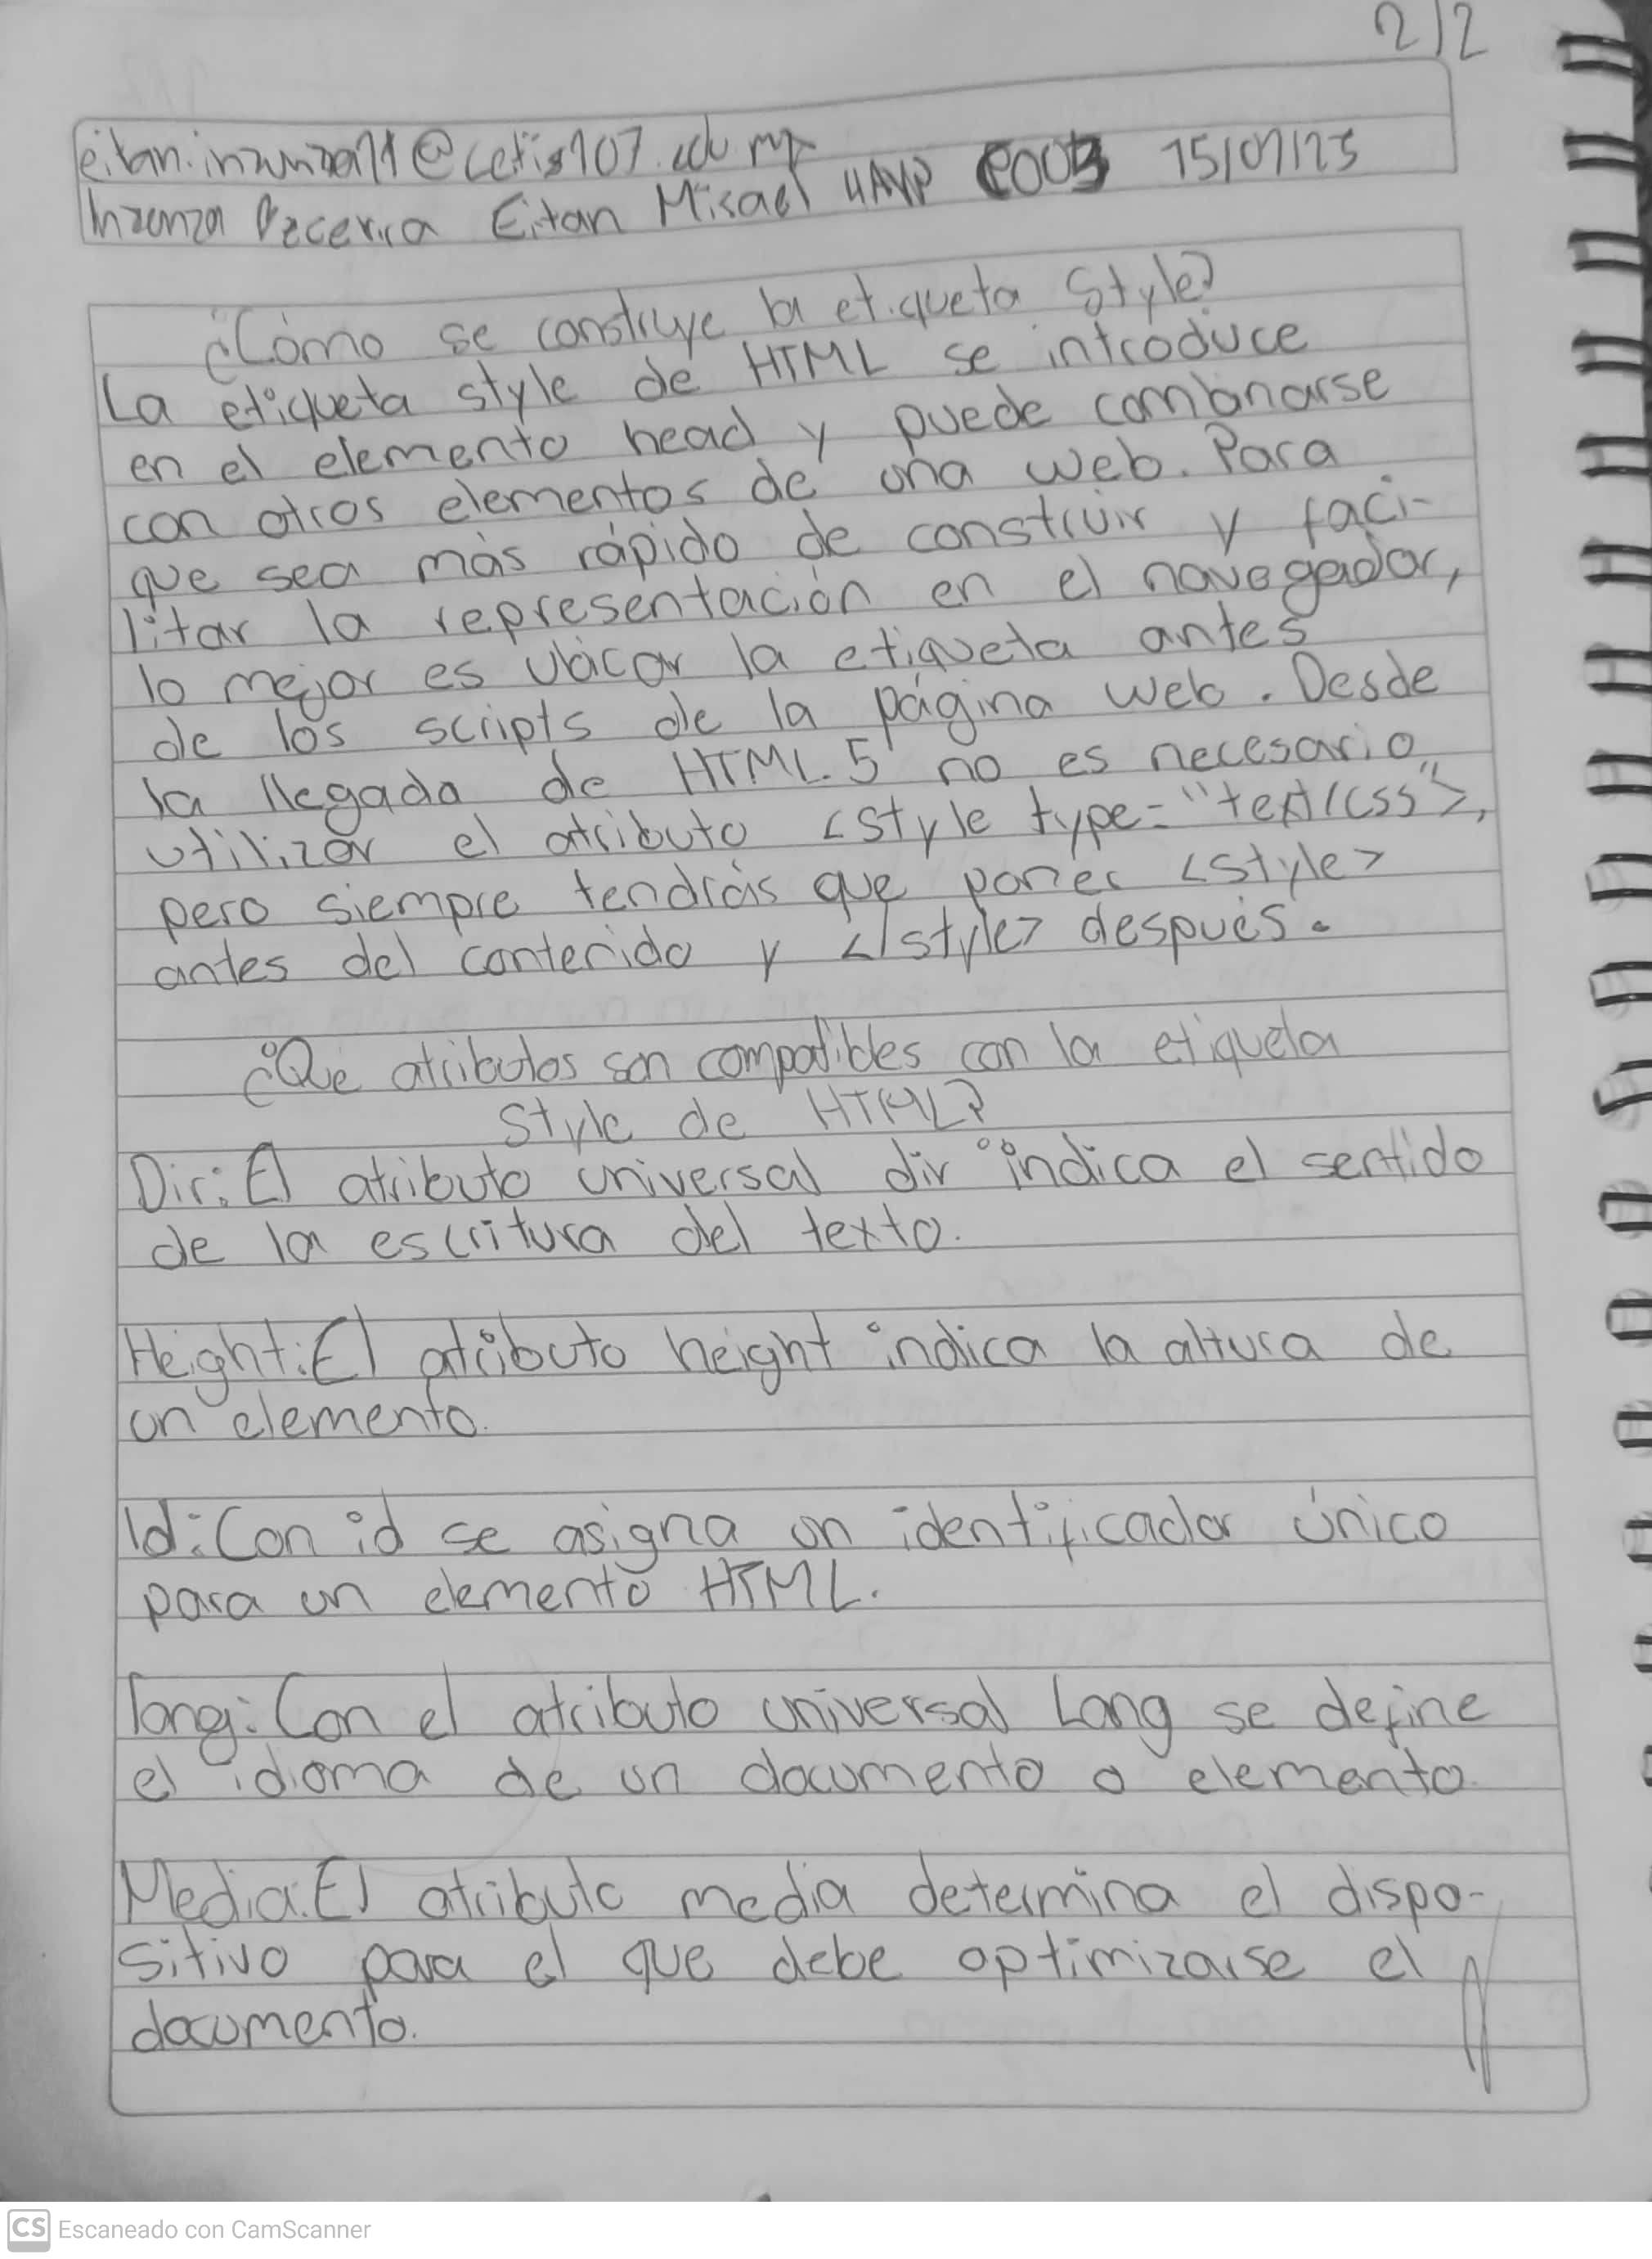 2/2
eitan.inzunza11@cetis107.edu.mx
Inzunza Becerra Eitan Misael 4AVP 15/01/25
¿Cómo se construye la etiqueta Style?
La etiqueta style de HTML se introduce
en el elemento head y puede combinarse
con otros elementos de una web. Para
que sea más rápido de construir y faci-
litar la representación en el navegador,
lo mejor es ubicar la etiqueta antes
de los scripts de la página web. Desde
la llegada de HTML5 no es necesario
utilizar el atributo <style type="text/css">,
pero siempre tendrás que poner <style>
antes del contenido y </style> después.
¿Qué atributos son compatibles con la etiqueta
Style de HTML?
Dir: El atributo universal dir indica el sentido
de la escritura del texto.
Height: El atributo height indica la altura de
un elemento.
Id: Con id se asigna un identificador único
para un elemento HTML.
lang: Con el atributo universal Lang se define
el idioma de un documento o elemento.
Media: El atributo media determina el dispo-
sitivo para el que debe optimizarse el
documento.
CS Escaneado con CamScanner